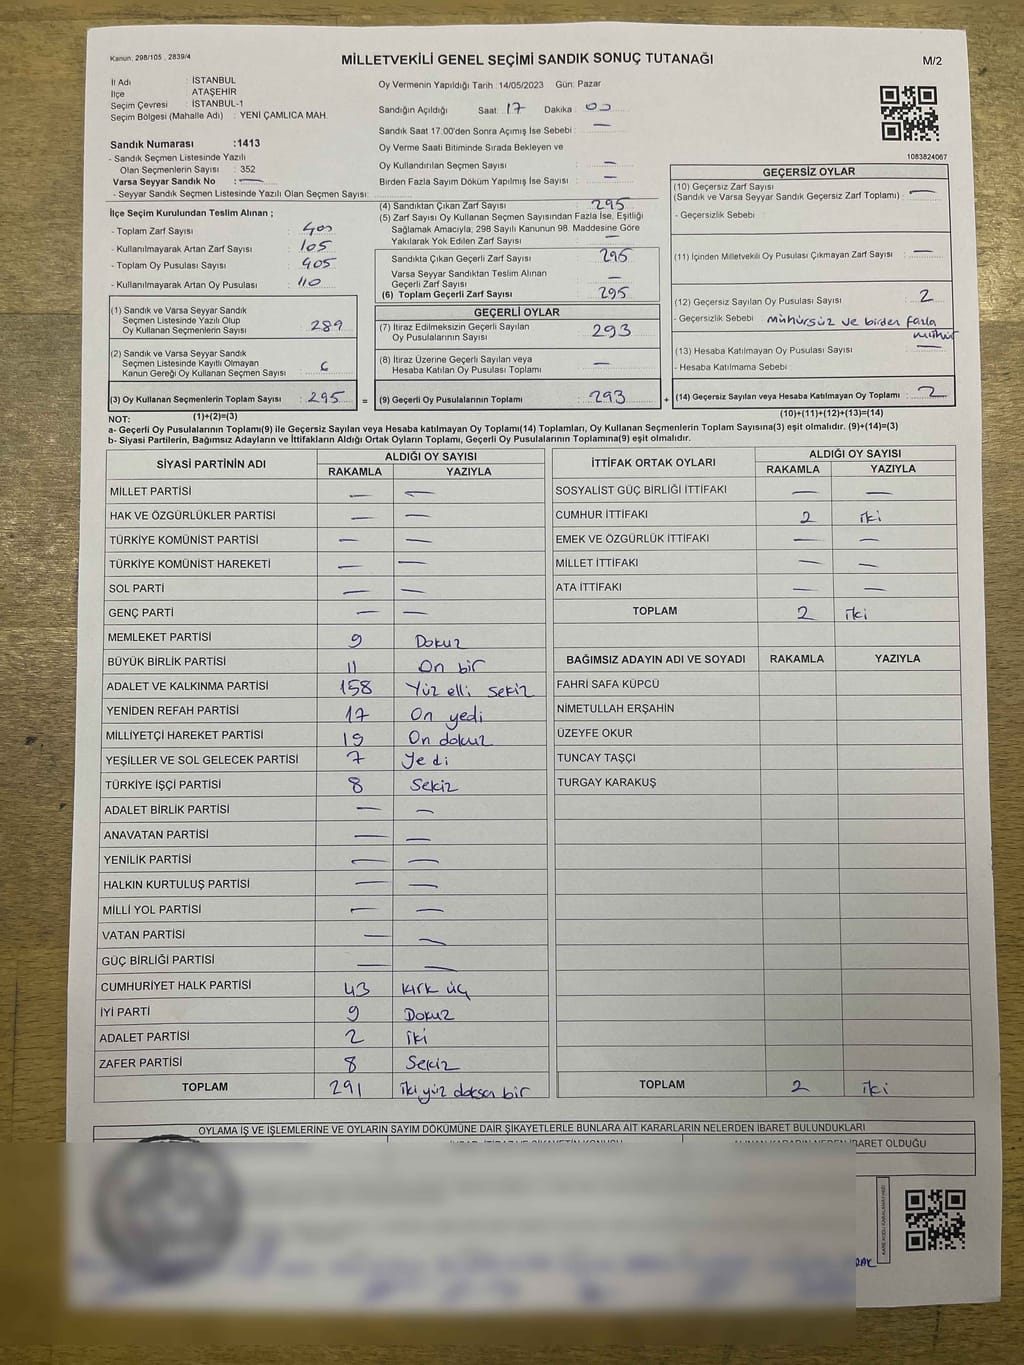 Kanun, 298/105 , 2839/4
MİLLETVEKİLİ GENEL SEÇİMİ SANDIK SONUÇ TUTANAĞI
M/2
İl Adı : İSTANBUL
İlçe : ATAŞEHİR
Seçim Çevresi : İSTANBUL-1
Seçim Bölgesi (Mahalle Adı) : YENİ ÇAMLICA MAH.
Oy Vermenin Yapıldığı Tarih : 14/05/2023 Gün: Pazar
Sandığın Açıldığı Saat: 17 Dakika : 00
Sandık Saat 17.00'den Sonra Açımış İse Sebebi : —
Oy Verme Saati Bitiminde Sırada Bekleyen ve
Oy Kullandırılan Seçmen Sayısı : —
Birden Fazla Sayım Döküm Yapılmış İse Sayısı : —
1083824067
Sandık Numarası :1413
- Sandık Seçmen Listesinde Yazılı
Olan Seçmenlerin Sayısı : 352
Varsa Seyyar Sandık No : —
- Seyyar Sandık Seçmen Listesinde Yazılı Olan Seçmen Sayısı:
İlçe Seçim Kurulundan Teslim Alınan ;
- Toplam Zarf Sayısı : 400
- Kullanılmayarak Artan Zarf Sayısı : 105
- Toplam Oy Pusulası Sayısı : 405
- Kullanılmayarak Artan Oy Pusulası : 110
(1) Sandık ve Varsa Seyyar Sandık
Seçmen Listesinde Yazılı Olup
Oy Kullanan Seçmenlerin Sayısı : 289
(2) Sandık ve Varsa Seyyar Sandık
Seçmen Listesinde Kayıtlı Olmayan
Kanun Gereği Oy Kullanan Seçmen Sayısı : 6
(3) Oy Kullanan Seçmenlerin Toplam Sayısı : 295 =
(4) Sandıktan Çıkan Zarf Sayısı : 295
(5) Zarf Sayısı Oy Kullanan Seçmen Sayısından Fazla İse, Eşitliği
Sağlamak Amacıyla; 298 Sayılı Kanunun 98. Maddesine Göre
Yakılarak Yok Edilen Zarf Sayısı : —
Sandıkta Çıkan Geçerli Zarf Sayısı : 295
Varsa Seyyar Sandıktan Teslim Alınan
Geçerli Zarf Sayısı : —
(6) Toplam Geçerli Zarf Sayısı : 295
GEÇERLİ OYLAR
(7) İtiraz Edilmeksizin Geçerli Sayılan
Oy Pusulalarının Sayısı : 293
(8) İtiraz Üzerine Geçerli Sayılan veya
Hesaba Katılan Oy Pusulası Toplamı : —
(9) Geçerli Oy Pusulalarının Toplamı : 293 +
GEÇERSİZ OYLAR
(10) Geçersiz Zarf Sayısı
(Sandık ve Varsa Seyyar Sandık Geçersiz Zarf Toplamı) : —
- Geçersizlik Sebebi :
(11) İçinden Milletvekili Oy Pusulası Çıkmayan Zarf Sayısı : —
(12) Geçersiz Sayılan Oy Pusulası Sayısı : 2
- Geçersizlik Sebebi : mühürsüz ve birden fazla
mühür
(13) Hesaba Katılmayan Oy Pusulası Sayısı : —
- Hesaba Katılmama Sebebi :
(14) Geçersiz Sayılan veya Hesaba Katılmayan Oy Toplamı : 2
NOT: (1)+(2)=(3)
(10)+(11)+(12)+(13)=(14)
a- Geçerli Oy Pusulalarının Toplamı(9) ile Geçersiz Sayılan veya Hesaba katılmayan Oy Toplamı(14) Toplamları, Oy Kullanan Seçmenlerin Toplam Sayısına(3) eşit olmalıdır. (9)+(14)=(3)
b- Siyasi Partilerin, Bağımsız Adayların ve İttifakların Aldığı Ortak Oyların Toplamı, Geçerli Oy Pusulalarının Toplamına(9) eşit olmalıdır.
SİYASİ PARTİNİN ADI ALDIĞI OY SAYISI
RAKAMLA YAZIYLA
MİLLET PARTİSİ — —
HAK VE ÖZGÜRLÜKLER PARTİSİ — —
TÜRKİYE KOMÜNİST PARTİSİ — —
TÜRKİYE KOMÜNİST HAREKETİ — —
SOL PARTİ — —
GENÇ PARTİ — —
MEMLEKET PARTİSİ 9 Dokuz
BÜYÜK BİRLİK PARTİSİ 11 On bir
ADALET VE KALKINMA PARTİSİ 158 Yüz elli sekiz
YENİDEN REFAH PARTİSİ 17 On yedi
MİLLİYETÇİ HAREKET PARTİSİ 19 On dokuz
YEŞİLLER VE SOL GELECEK PARTİSİ 7 Yedi
TÜRKİYE İŞÇİ PARTİSİ 8 Sekiz
ADALET BİRLİK PARTİSİ — —
ANAVATAN PARTİSİ — —
YENİLİK PARTİSİ — —
HALKIN KURTULUŞ PARTİSİ — —
MİLLİ YOL PARTİSİ — —
VATAN PARTİSİ — —
GÜÇ BİRLİĞİ PARTİSİ — —
CUMHURİYET HALK PARTİSİ 43 Kırk üç
İYİ PARTİ 9 Dokuz
ADALET PARTİSİ 2 İki
ZAFER PARTİSİ 8 Sekiz
TOPLAM 291 İki yüz doksan bir
İTTİFAK ORTAK OYLARI ALDIĞI OY SAYISI
RAKAMLA YAZIYLA
SOSYALİST GÜÇ BİRLİĞİ İTTİFAKI — —
CUMHUR İTTİFAKI 2 iki
EMEK VE ÖZGÜRLÜK İTTİFAKI — —
MİLLET İTTİFAKI — —
ATA İTTİFAKI — —
TOPLAM 2 iki
BAĞIMSIZ ADAYIN ADI VE SOYADI RAKAMLA YAZIYLA
FAHRİ SAFA KÜPCÜ
NİMETULLAH ERŞAHİN
ÜZEYFE OKUR
TUNCAY TAŞÇI
TURGAY KARAKUŞ
TOPLAM 2 iki
OYLAMA İŞ VE İŞLEMLERİNE VE OYLARIN SAYIM DÖKÜMÜNE DAİR ŞİKAYETLERLE BUNLARA AİT KARARLARIN NELERDEN İBARET BULUNDUKLARI
ALINAN KARARIN NEDEN İBARET OLDUĞU